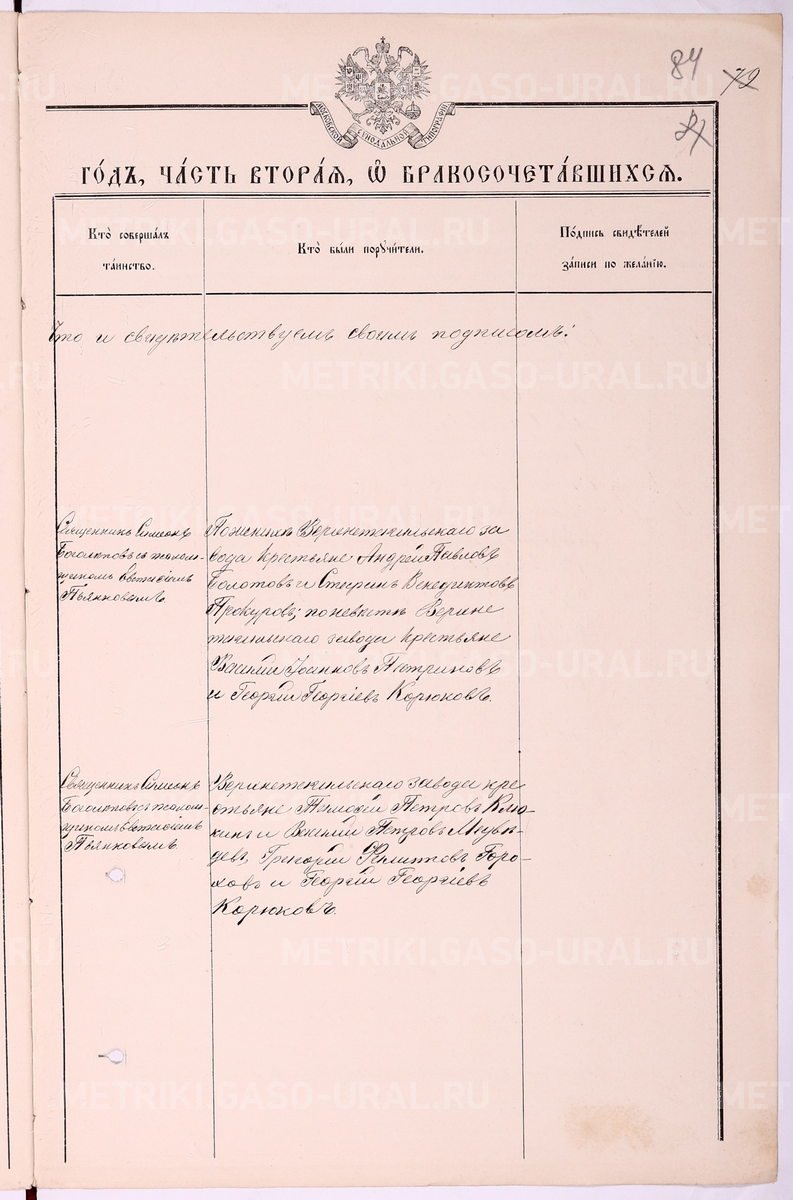 84 72
МОСКОВСКОЙ СѴНОДАЛЬНОЙ ТИПОГРАФІИ
ГО́ДЪ, ЧА́СТЬ ВТОРА́Я, Ѡ҆ БРАКОСОЧЕТА́ВШИХСЯ.
Кто̀ соверша́лъ
та́инство.
Кто̀ бы́ли порꙋчи́тели.
По́дпись свидѣ́телей
за́писи по жела́нїю.
Что и свидѣтельствуемъ своимъ подписомъ:
Священникъ Симеонъ
Боголюповъ съ псалом-
щикомъ Евстафіемъ
Пьянковымъ
По женихѣ Верхнетагильскаго за
вода крестьяне Андрей Павловъ
Болотовъ и Венедиктовъ
по невѣстѣ Верхне
тагильскаго завода крестьяне
Василій Іоанновъ
и Георгій Георгіевъ Корюковъ.
Священникъ Симеонъ
Боголюповъ съ псалом-
щикомъ Евстафіемъ
Пьянковымъ
Верхнетагильскаго завода кре
стьяне Петровъ Клю
кинъ и Василій Петровъ Медвѣ
девъ, Григорій Филипповъ Горо-
ховъ и Георгій Георгіевъ
Корюковъ.
METRIKI.GASO-URAL.RU